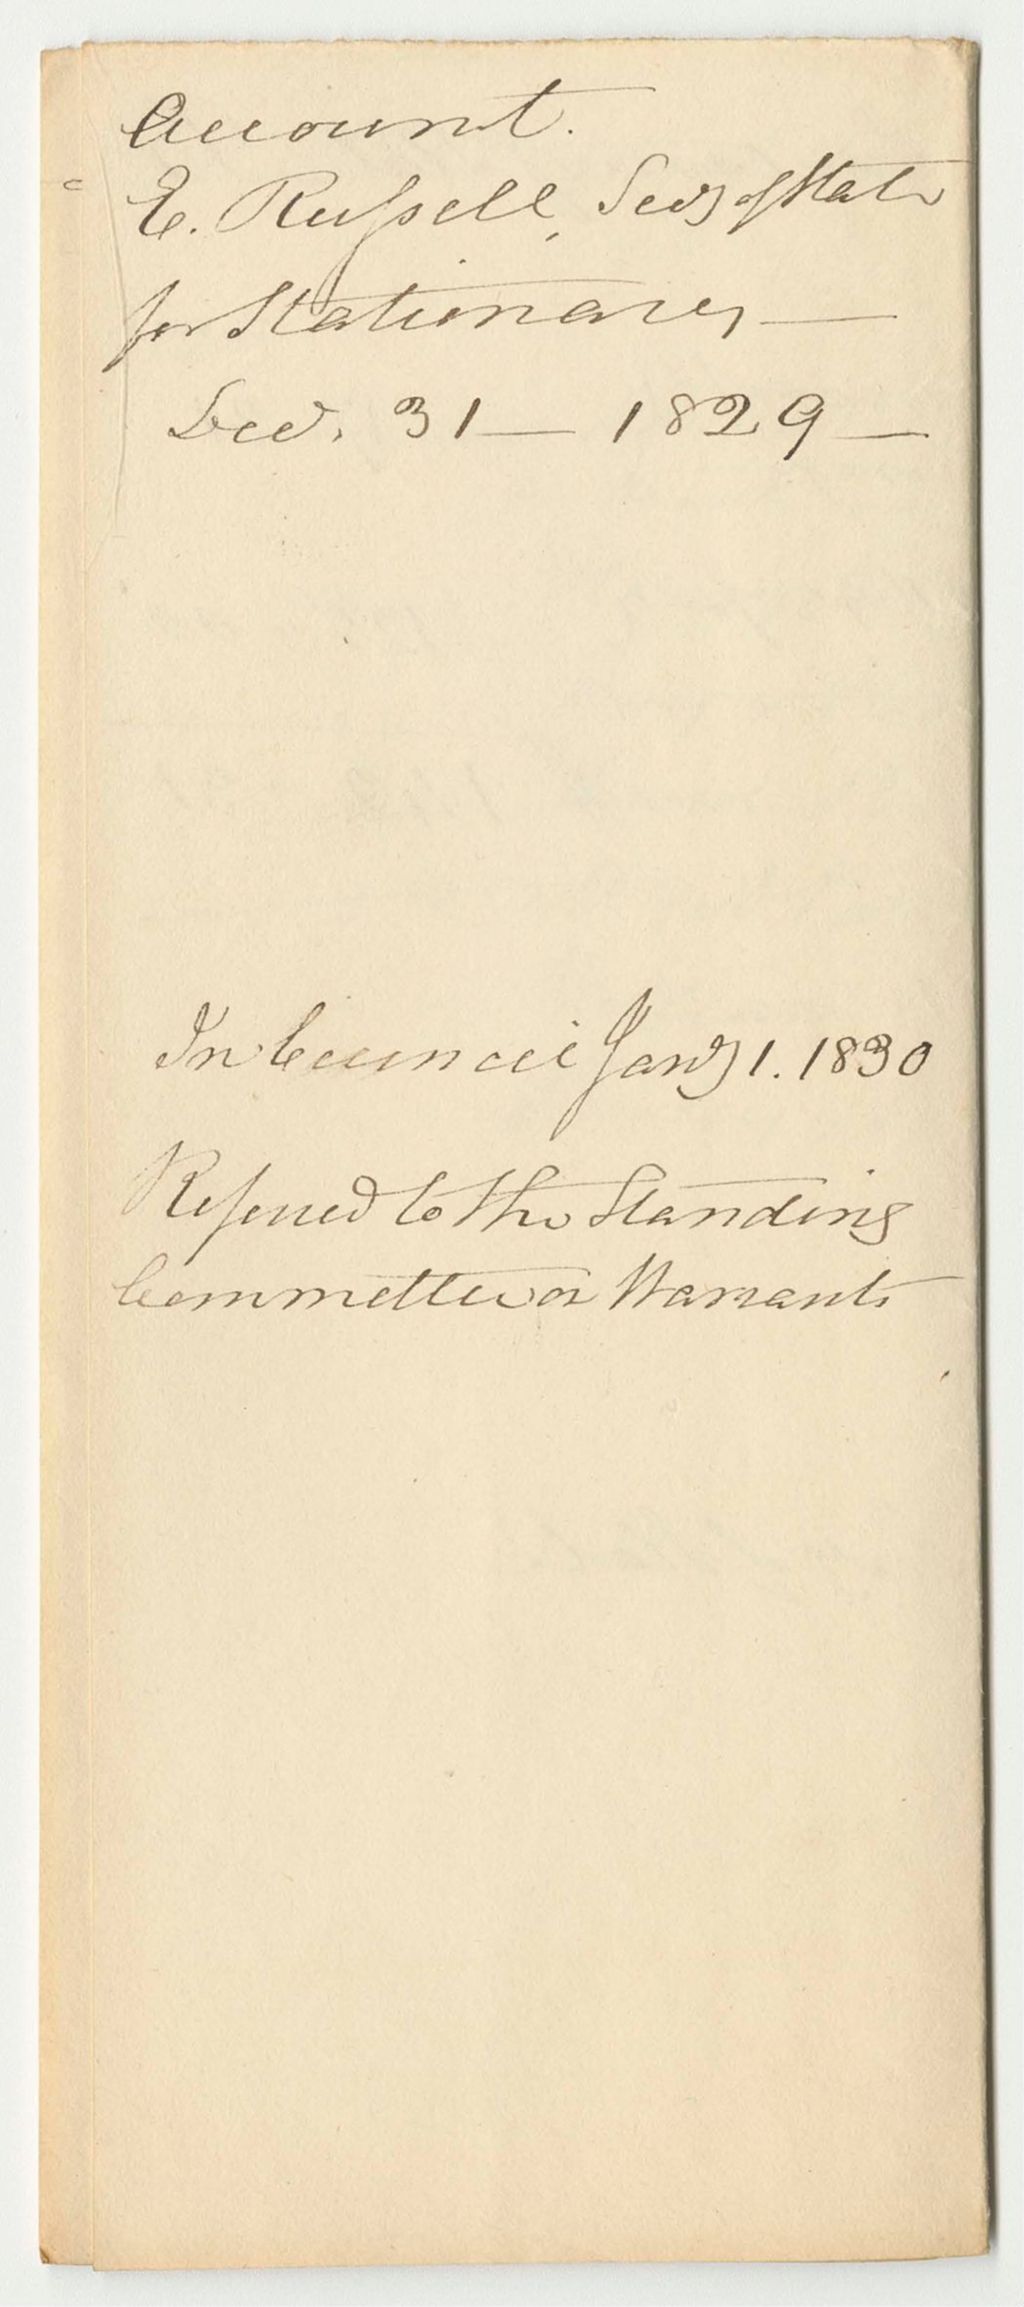 Account.
E. Russell, Secy of State
for Stationary —
Dec. 31 — 1829 —
In Council Jany 1. 1830
Referred to the Standing
Committee on Warrants